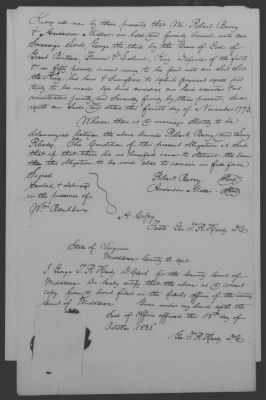 Know all men by these presents that We Robert Berry
& Anderson Miller are held & firmly bounds unto our
Sovereign Lord, George the third by the Grace of God of
Great Britain, France & Ireland, King Defender of the faith
&c in fifty pounds money to be paid unto our said
the King, his heirs & Successors to which payment well and
truly to be made we bind ourselves our heirs Executors and
administrators jointly and Severally firmly by these presents, Seal
with our Seals and dated this day of November 1772
Whereas there is a marriage shortly to be
Solemnized between the above bounds Robert Berry and
Rhodes, The Condition of this present Obligation is Such
that if there be no lawful cause to obstruct the Same
then this Obligation to be void else to remain in full force
Signed
Sealed & delivered
in the presence of
Robert Berry
Anderson Miller
A Copy
Teste Geo T. R. Healy DC
State of Virginia
Middlesex County to wit
I George T. R. Healy D Clerk for the County Court of
Middlesex Do hereby certify that the above is a correct
copy from the bond filed in the Clerks office of the County
Court of Middlesex Given under my hand with the
Seal of Office affixed this 15th day of
October 1836
Geo T. R. Healy DC